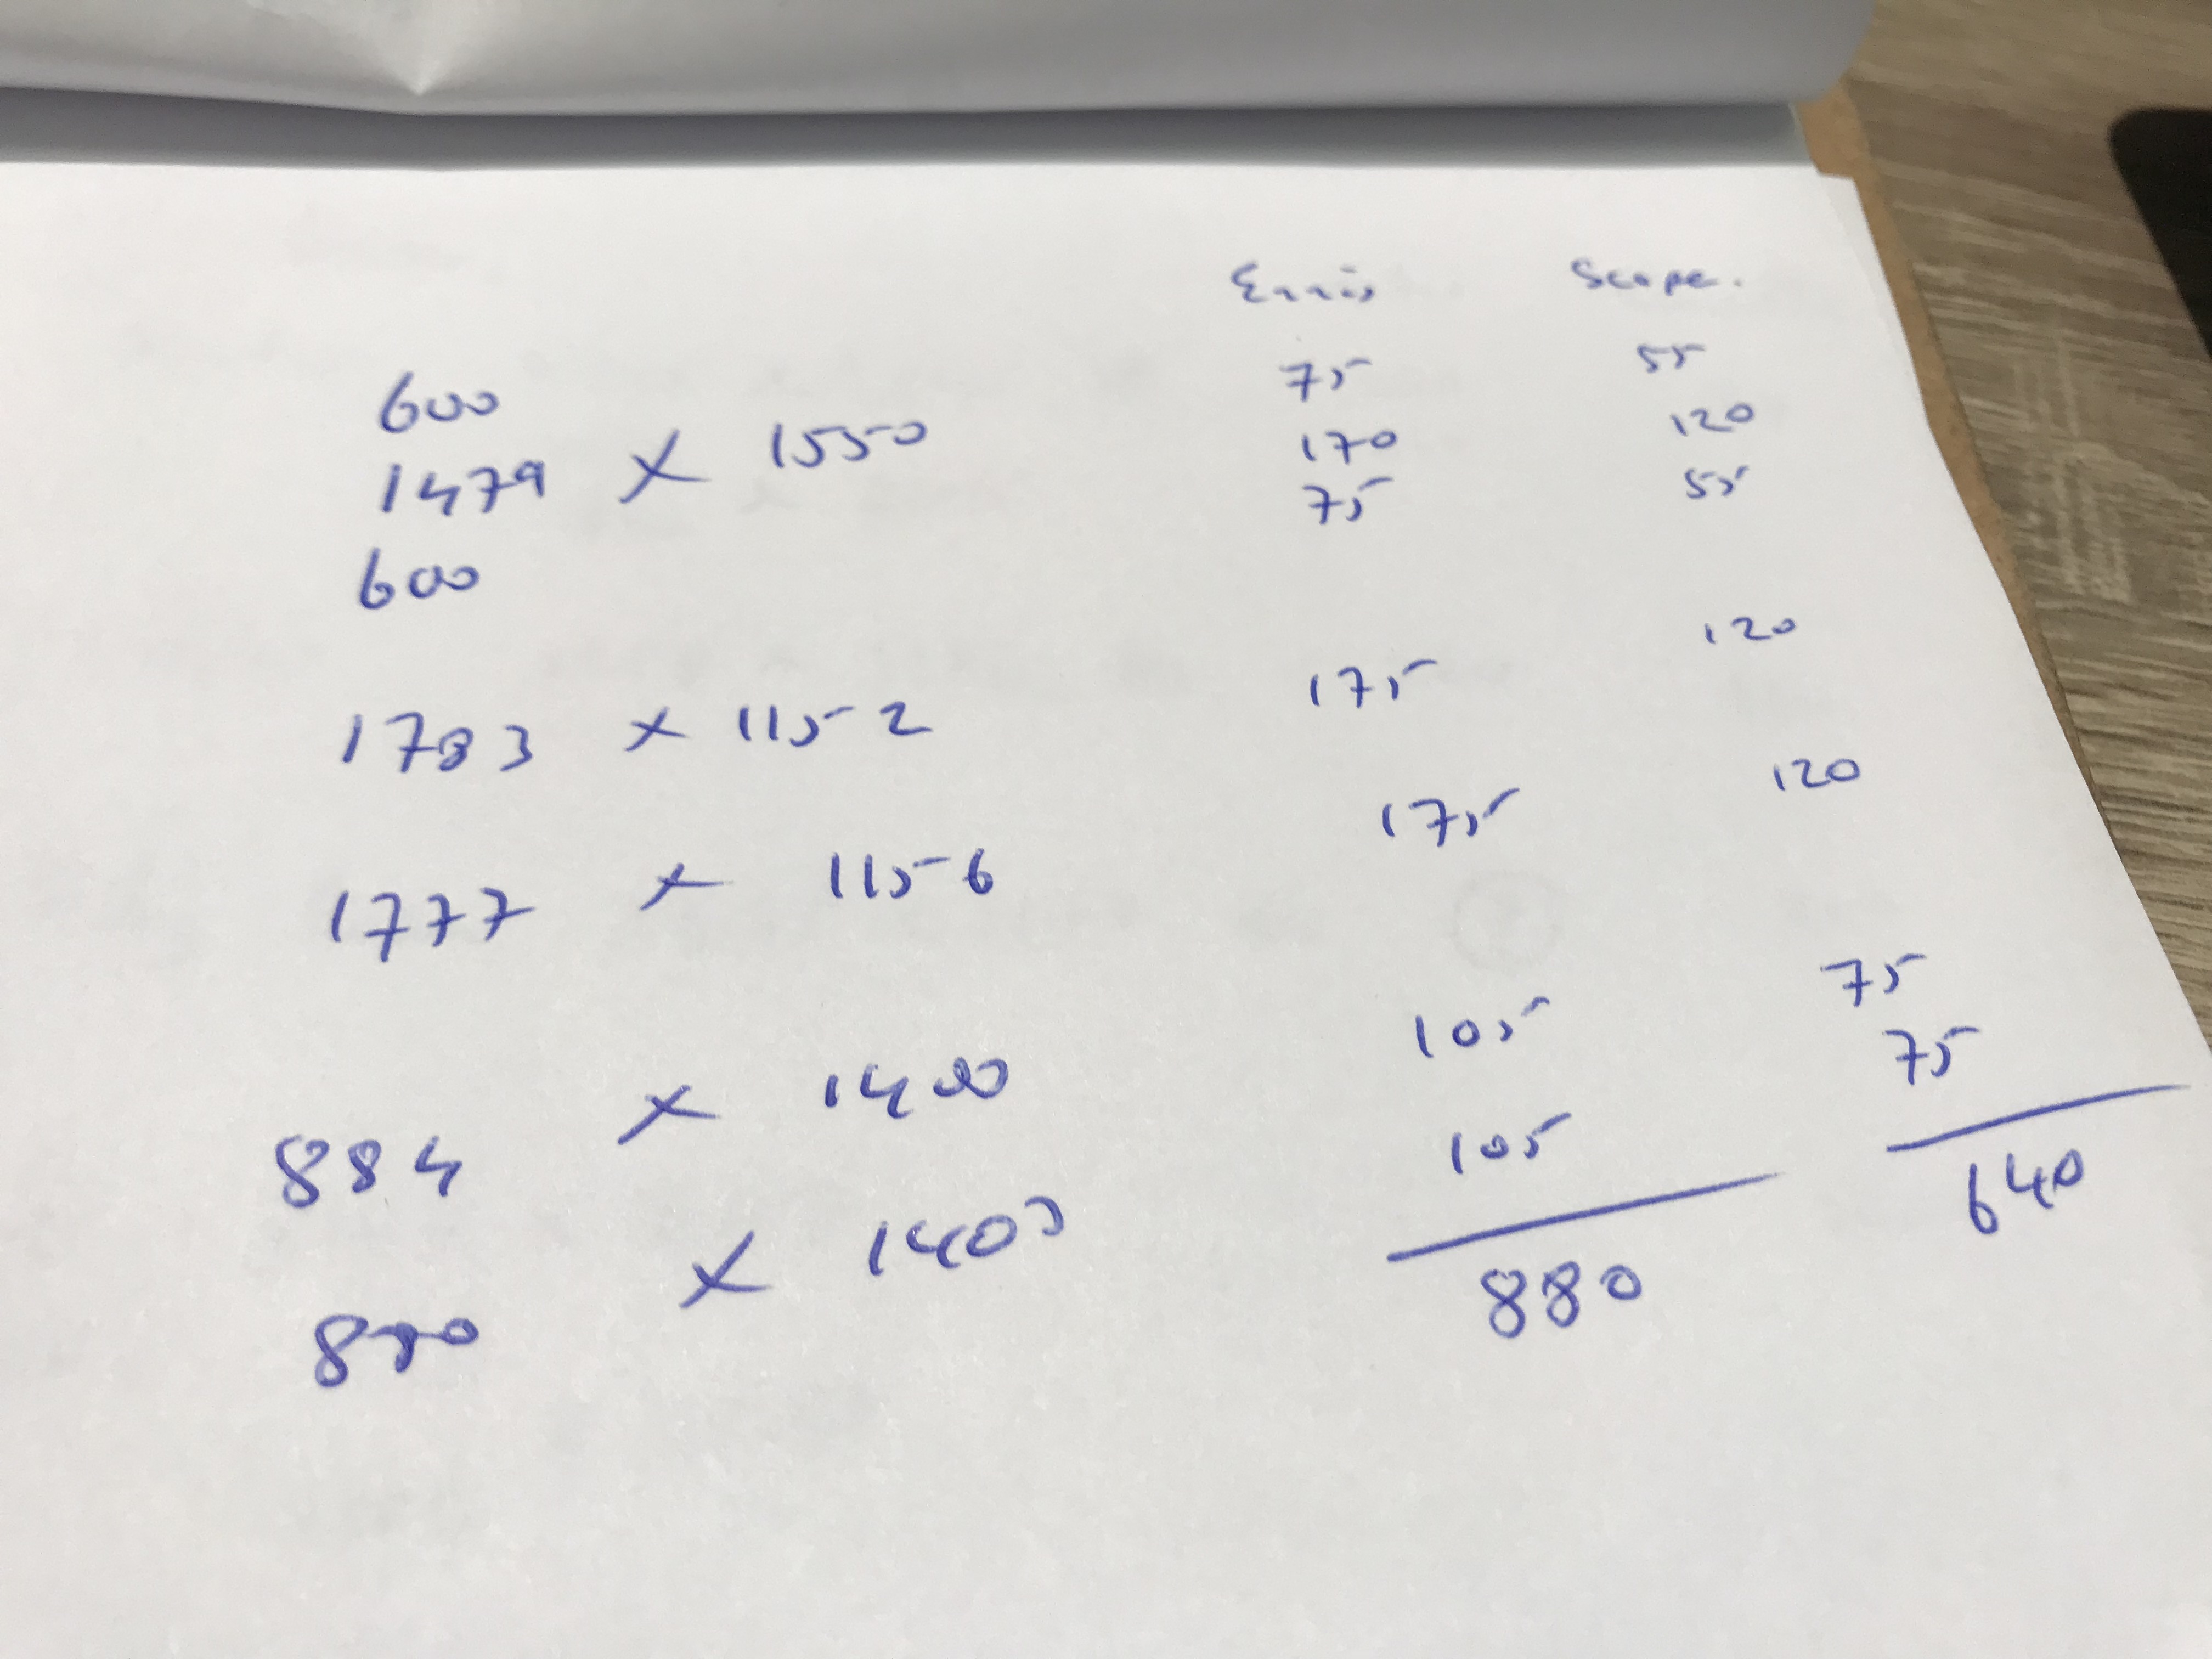 Ennis Scope.
600 75 55
1479 x 1550 170 120
600 75 55
1783 x 1152 175 120
1777 x 1156 175 120
884 x 1400 105 75
x 1400 105 75
880 640